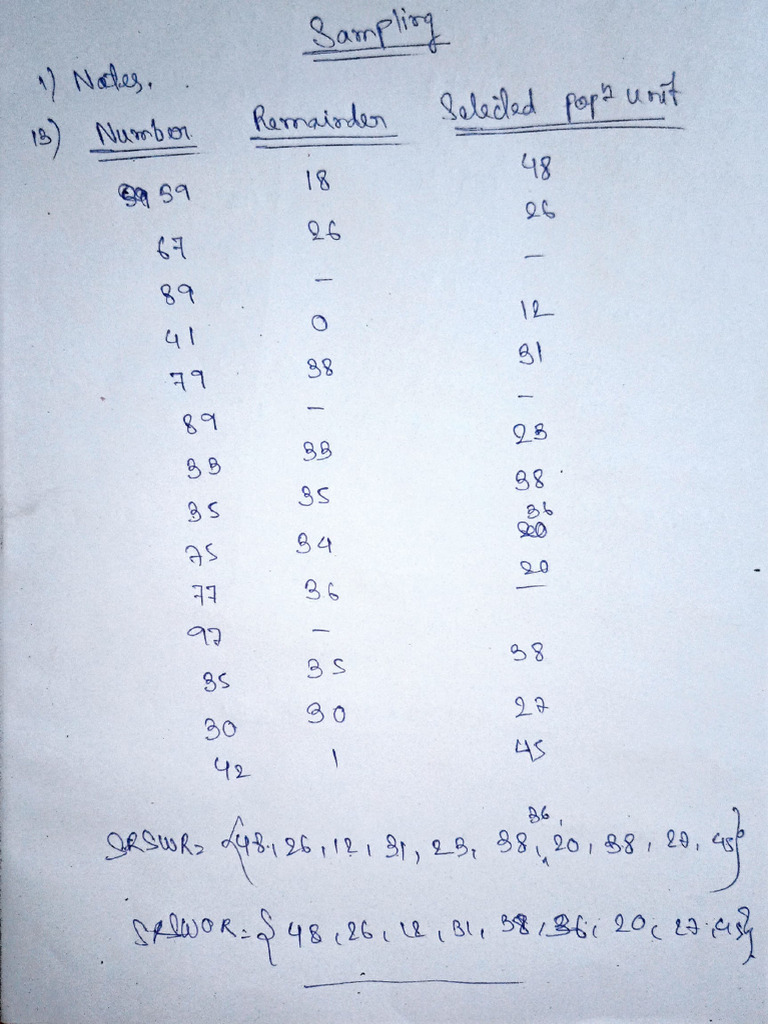 Sampling
1) Notes.
13) Number Remainder Selected popⁿ unit
59 18 48
67 26 26
89 — —
41 0 12
79 38 31
89 — —
33 33 23
35 35 38
75 34 36
77 36 20
97 — —
35 35 38
30 30 27
42 1 45
SRSWR = {48, 26, 12, 31, 23, 38, 36, 20, 38, 27, 45}
SRSWOR = { 48, 26, 12, 31, 38, 36, 20, 27, 45}